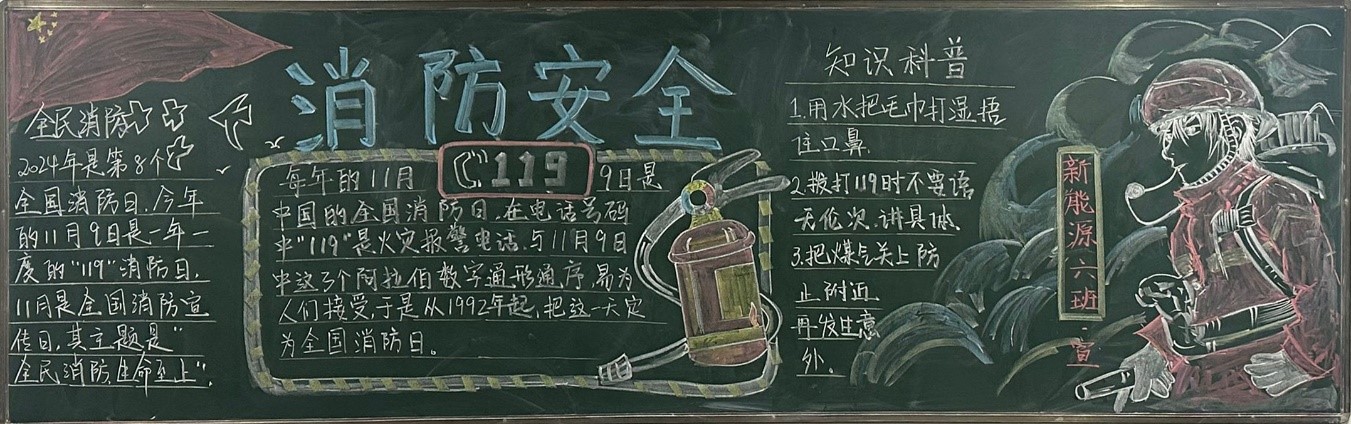 消防安全
全民消防
2024年是第8个
全国消防日,今年
的11月9日是一年一
度的"119"消防日,
11月是全国消防宣
传日,其主题是"
全民消防,生命至上".
119
每年的11月 9日是
中国的全国消防日,在电话号码
中"119"是火灾报警电话,与11月9日
中这3个阿拉伯数字通形通序,易为
人们接受,于是从1992年起,把这一天定
为全国消防日。
知识科普
1.用水把毛巾打湿捂
住口鼻.
2.拨打119时不要语
无伦次,讲具体.
3.把煤气关上防
止附近
再发生意
外.
新能源六班·宣